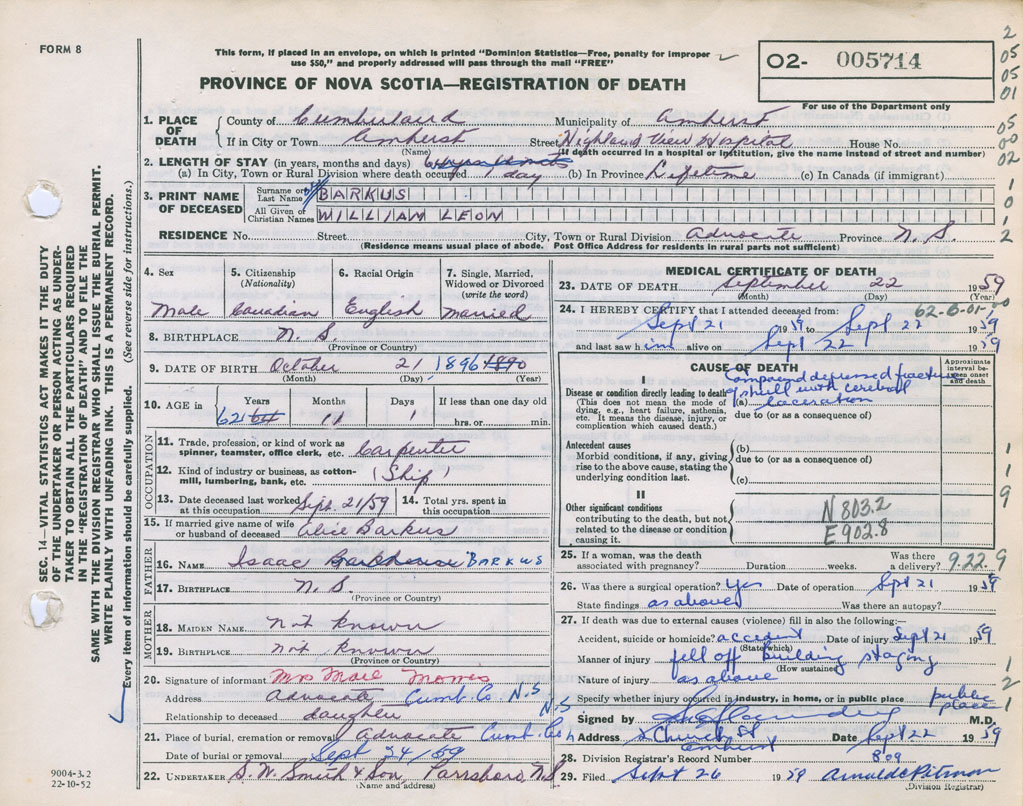 FORM 8
This form, if placed in an envelope, on which is printed "Dominion Statistics—Free, penalty for improper
use $50," and properly addressed will pass through the mail "FREE"
PROVINCE OF NOVA SCOTIA—REGISTRATION OF DEATH
O2- 005714
For use of the Department only
2
05
05
01
05
00
02
1. PLACE OF DEATH County of Cumberland Municipality of Amherst
If in City or Town Amherst Street Highland View Hospital House No.
(Name) (If death occurred in a hospital or institution, give the name instead of street and number)
2. LENGTH OF STAY (in years, months and days)
(a) In City, Town or Rural Division where death occurred 1 day (b) In Province Lifetime (c) In Canada (if immigrant)
3. PRINT NAME OF DECEASED Surname or Last Name BARKUS
All Given or Christian Names WILLIAM LEON
0
1
2
RESIDENCE No. Street City, Town or Rural Division Advocate Province N.S.
(Residence means usual place of abode. Post Office Address for residents in rural parts not sufficient)
SEC. 14—VITAL STATISTICS ACT MAKES IT THE DUTY
OF THE UNDERTAKER OR PERSON ACTING AS UNDER-
TAKER TO OBTAIN ALL THE PARTICULARS REQUIRED
IN THE "REGISTRATION OF DEATH" AND TO FILE THE
SAME WITH THE DIVISION REGISTRAR WHO SHALL ISSUE THE BURIAL PERMIT.
WRITE PLAINLY WITH UNFADING INK. THIS IS A PERMANENT RECORD.
Every item of information should be carefully supplied. (See reverse side for instructions.)
4. Sex 5. Citizenship 6. Racial Origin 7. Single, Married,
(Nationality) Widowed or Divorced
(write the word)
Male Canadian English Married
8. BIRTHPLACE N.S.
(Province or Country)
9. DATE OF BIRTH October 21 1896 1890
(Month) (Day) (Year)
10. AGE in Years Months Days If less than one day old
62 11 1 hrs. or min.
OCCUPATION
11. Trade, profession or kind of work as
spinner, teamster, office clerk, etc. Carpenter
12. Kind of industry or business, as cotton-
mill, lumbering, bank, etc. (Ship)
13. Date deceased last worked
at this occupation Sept. 21/59
14. Total yrs. spent in
this occupation
15. If married give name of wife
or husband of deceased Elsie Barkus
FATHER
16. NAME Isaac BARKUS
17. BIRTHPLACE N.S.
(Province or Country)
MOTHER
18. MAIDEN NAME not known
19. BIRTHPLACE not known
(Province or Country)
20. Signature of informant Mrs
Address Advocate Cumb. Co. N.S
Relationship to deceased daughter N.S
21. Place of burial, cremation or removal Advocate Cumb. Co
Date of burial or removal Sept 24/59
22. UNDERTAKER S. W. Smith & Son, Parrsboro, N.S.
(Name and address)
9004-3.2
22-10-52
MEDICAL CERTIFICATE OF DEATH
23. DATE OF DEATH September 22 1959
(Month) (Day) (Year)
24. I HEREBY CERTIFY that I attended deceased from: 62-6-01-00
Sept 21 1959 to Sept 22 1959
and last saw him alive on Sept 22 1959
CAUSE OF DEATH
Approximate interval between onset and death
I
Disease or condition directly leading to death
(This does not mean the mode of
dying, e.g., heart failure, asthenia,
etc. It means the disease, injury, or
complication which caused death.)
Compound depressed fracture
of skull with cerebral
(a) laceration
due to (or as a consequence of)
Antecedent causes
Morbid conditions, if any, giving
rise to the above cause, stating the
underlying condition last.
(b)
due to (or as a consequence of)
(c)
II
Other significant conditions
contributing to the death, but not
related to the disease or condition
causing it.
N 803.2
E 902.8
1
1
9
25. If a woman, was the death Was there
associated with pregnancy? Duration weeks. a delivery? 9.22.9
26. Was there a surgical operation? Yes Date of operation Sept 21 1959
State findings as above Was there an autopsy?
27. If death was due to external causes (violence) fill in also the following:—
Accident, suicide or homicide? accident Date of injury Sept 21 1959
(State which)
Manner of injury fell off building staging
(How sustained)
Nature of injury as above
Specify whether injury occurred in industry, in home, or in public place public place
1
2
1
Signed by M.D.
Address Church St Amherst Date Sept 22 1959
28. Division Registrar's Record Number 809
29. Filed Sept 26 1959 Arnold C Pitman
(Division Registrar)